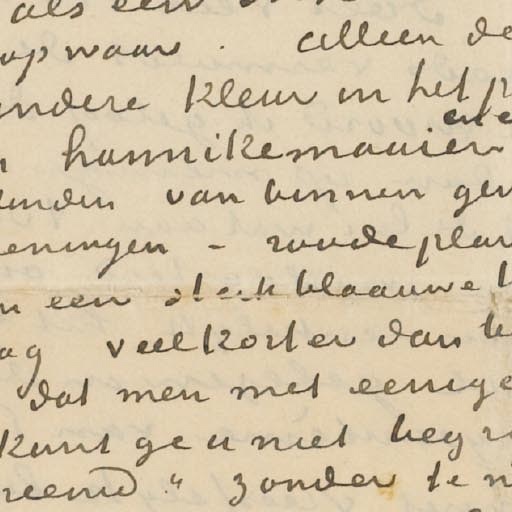 als een
op waar . alleen de
andere kleur in het p
en
hannikemaaier
van binnen gev
eningen - roode plan
n een sterk blaauwe
ag veel korter dan
dat men met eenige
kunt ge u niet begr
reemd" zonder te